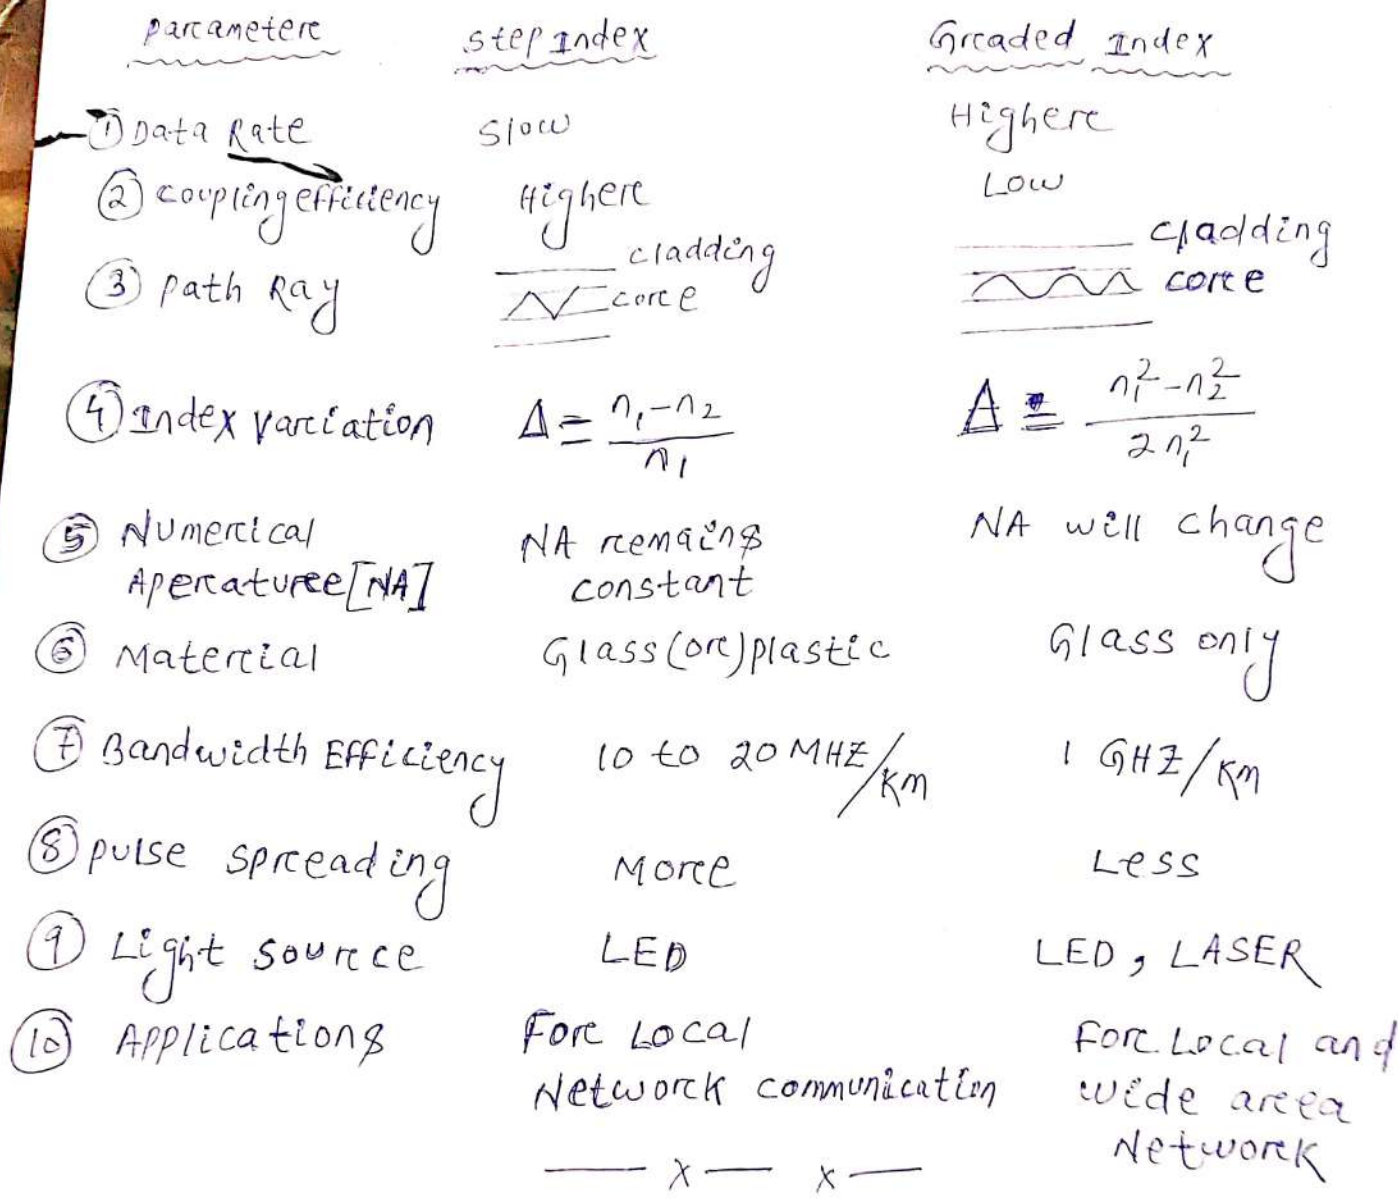 Parameter step index Graded index
① Data Rate Slow Higher
② coupling efficiency Higher Low
③ path Ray cladding core cladding core
④ index variation Δ = n₁-n₂ / n₁ Δ = n₁²-n₂² / 2n₁²
⑤ Numerical NA remains NA will change
Aperature [NA] constant
⑥ Material Glass (or) plastic Glass only
⑦ Bandwidth Efficiency 10 to 20 MHZ/KM 1 GHZ/KM
⑧ pulse spreading More Less
⑨ Light source LED LED, LASER
⑩ Applications For Local For Local and
Network communication wide area
Network
— x — x —